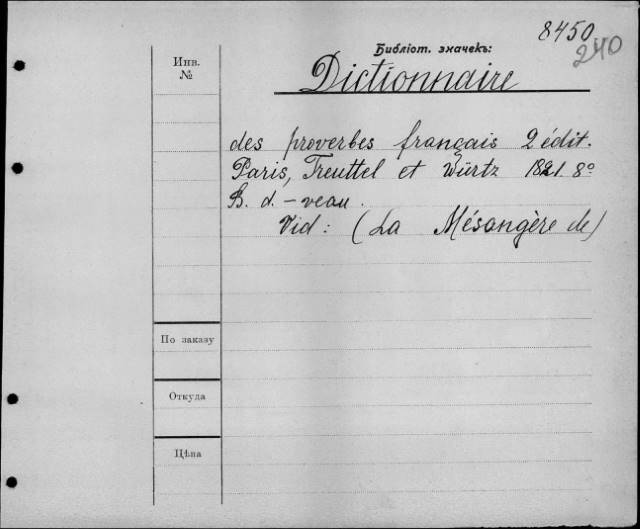 8450
240
Библіот. значекъ:
Инв.
№
Dictionnaire
des proverbes français 2 édit.
Paris, Treuttel et Würtz 1821. 8º
B. d. – veau.
Vid: (La Mésangère de)
По заказу
Откуда
Цѣна